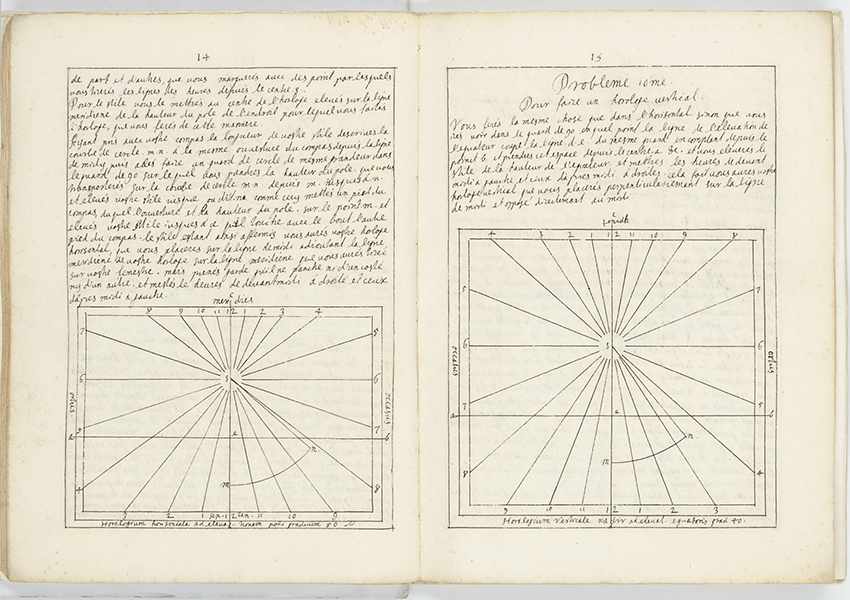 14
de part et d'autres, que vous marquerés avec des point par lesquels
vous tirerés les lignes des heures depuis le centre g.
Pour le stile vous le mettrés au centre de l'horloge elevés sur la ligne
meridiene de la hauteur du pole de l'endroit pour lequel vous faites
l'horloge, que vous ferés de cette maniere.
ayant pris avec vostre compas la longueur de vostre stile descrivés la
courbe de cercle m n à la mesme ouverture du compas depuis la ligne
de midy puis allés faire un quard de cercle de mesme grandeur dans
le quard de 90 sur le quel vous prandrés la hauteur du pole, que vous
transporterés sur la courbe de cercle m n depuis m jusques à n
et elevés vostre stile jusque au dit n comme ceci mettés un pied du
compas du quel l'ouverture est la hauteur du pole, sur le point m. et
elevés vostre stile jusques à ce qu'il touche avec le bout l'autre
pied du compas le stile estant ainsi affermis vous aurés vostre horloge
horisontal, que vous placerés sur la ligne de midi adioutant la ligne
meridiene de vostre horloge sur la ligne meridiene que vous aurés tirée
sur vostre fenestre, mais prenés garde qu'il ne panche ni d'un costé
ny d'un autre, et mettés le heures de devant midi à droite et ceux
d'apres midi à gauche.
meridies
8 9 10 11 12 1 2 3 4
7 5
6 6
5 7
4 8
s
e
n
m
ortus
occasus
3 2 1 12 11 10 9
Horologium horisontale ad elevat.
15
Probleme 10me.
Pour faire un horloge vertical.
Vous ferés la mesme chose que dans l'horisontal sinon que vous
irés voir dans le quard de 90 en quel point la ligne de l'elevation de
l'equateur coupe la ligne d e du mesme quard en comptant depuis le
point b et prendrés cet espace depuis le centre a. &c. et vous eleverés le
stile de la hauteur de l'equateur et mettrés les heures de devant
midi à gauche et ceux d'apres midi à droite, cela fait vous aurés vostre
horloge vertical que vous placerés perpendiculairement sur la ligne
de midi et opposé directement au midi.
4 3 2 1 12 11 10 9 8
5 7
6 6
7 5
8 4
s
e
n
m
occasus
ortus
9 10 11 12 1 2 3
Horologium verticale ad elevat. equatoris grad 40.